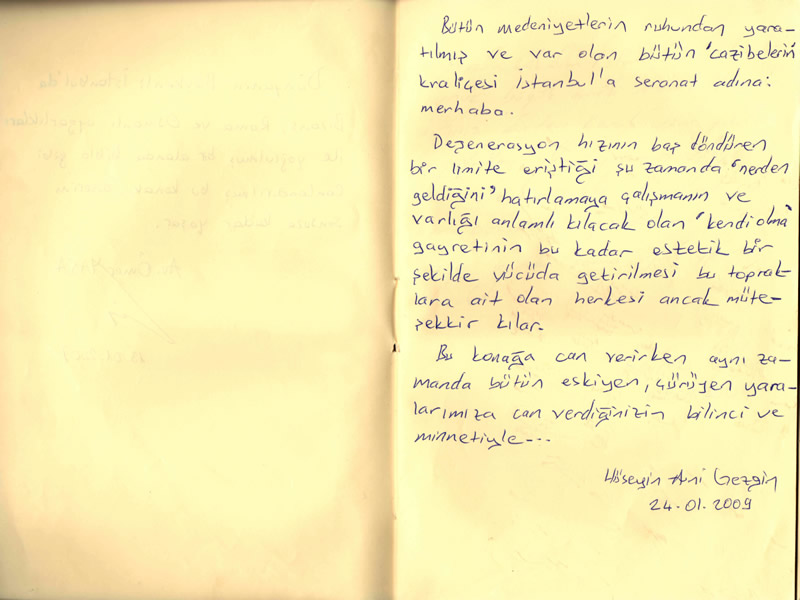 Bütün medeniyetlerin ruhundan yara-
tılmış ve var olan bütün 'cazibelerin'
kraliçesi İstanbul'a seranat adına:
merhaba.
Dejenerasyon hızının baş döndüren
bir limite eriştiği şu zamanda 'nerden
geldiğini' hatırlamaya çalışmanın ve
varlığı anlamlı kılacak olan 'kendi olma'
gayretinin bu kadar estetik bir
şekilde vücüda getirilmesi bu toprak-
lara ait olan herkesi ancak müte-
şekkir kılar.
Bu konağa can verirken aynı za-
manda bütün eskiyen, çürüyen yara-
larımıza can verdiğinizin bilinci ve
minnetiyle---
Hüseyin Avni Gezgin
24.01.2009